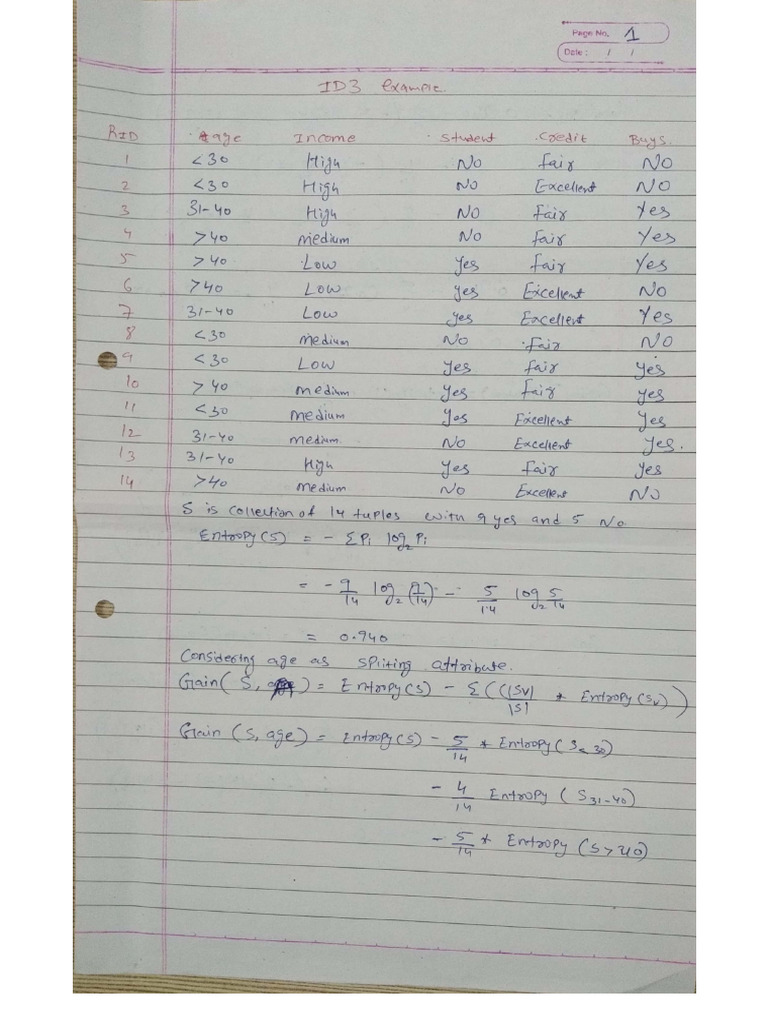 Page No. 1
Date : / /
ID3 example.
RID Age Income Student Credit Buys.
1 <30 High No fair No
2 <30 High No Excellent No
3 31-40 High No fair Yes
4 >40 medium No fair Yes
5 >40 Low Yes fair Yes
6 >40 Low Yes Excellent No
7 31-40 Low Yes Excellent Yes
8 <30 medium No fair No
9 <30 Low Yes fair Yes
10 >40 medium Yes fair Yes
11 <30 medium Yes Excellent Yes
12 31-40 medium. No Excellent Yes.
13 31-40 High Yes fair Yes
14 >40 medium No Excellent No
S is collection of 14 tuples with 9 yes and 5 No.
Entropy(S) = - ΣPi log2 Pi
= - 9/14 log2 (9/14) - 5/14 log2 5/14
= 0.940
Considering age as spliting attribute.
Gain( S, age ) = Entropy(S) - Σ((|Sv|/|S| * Entropy(Sv))
Gain (S, age) = Entropy(S) - 5/14 * Entropy(S<30)
- 4/14 Entropy (S31-40)
- 5/14 * Entropy (S>40)